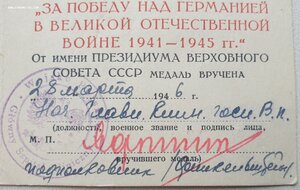 "ЗА ПОБЕДУ НАД ГЕРМАНИЕЙ
В ВЕЛИКОЙ ОТЕЧЕСТВЕННОЙ
ВОЙНЕ 1941—1945 гг."
От имени ПРЕЗИДИУМА ВЕРХОВНОГО
СОВЕТА СССР МЕДАЛЬ ВРУЧЕНА
28 марта 1946 г.
Нач. Главн. клин. госп. В.
(должность, военное звание и подпись лица,
М. П.
вручившего медаль)
подполковник